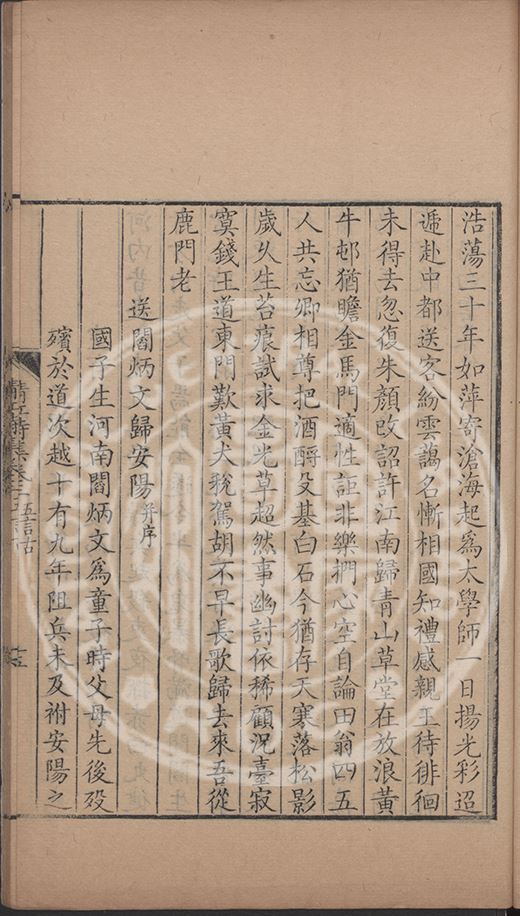 浩蕩三十年如萍寄滄海起爲太學師一日揚光彩迢
遞赴中都送客紛雲藹名慚相國知禮感親王待徘徊
未得去忽復朱顏改詔許江南歸青山草堂在放浪黃
牛邨猶瞻金馬門適性詎非樂捫心空自論田翁四五
人共忘卿相尊把酒酹殳基白石今猶存天寒落松影
歲久生苔痕試求金光草超然事幽討依稀顧況臺寂
寞錢王道東門歎黃犬稅駕胡不早長歌歸去來吾從
鹿門老
送閻炳文歸安陽并序
國子生河南閻炳文爲童子時父母先後歿
殯於道次越十有九年阻兵未及祔安陽之
清江詩集卷三五言古